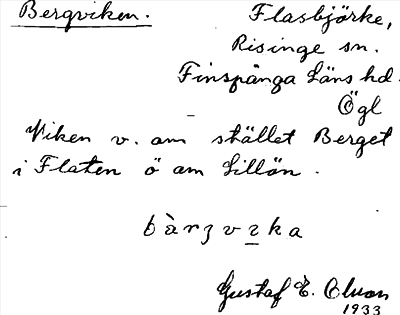 Bergviken.
Flasbjörke,
Risinge sn.
Finspånga Läns hd.
Ögl
Viken v. om stället Berget
i Flaten ö om Lillön.
bàrʒvɩka
Gustaf E. Olson
1933